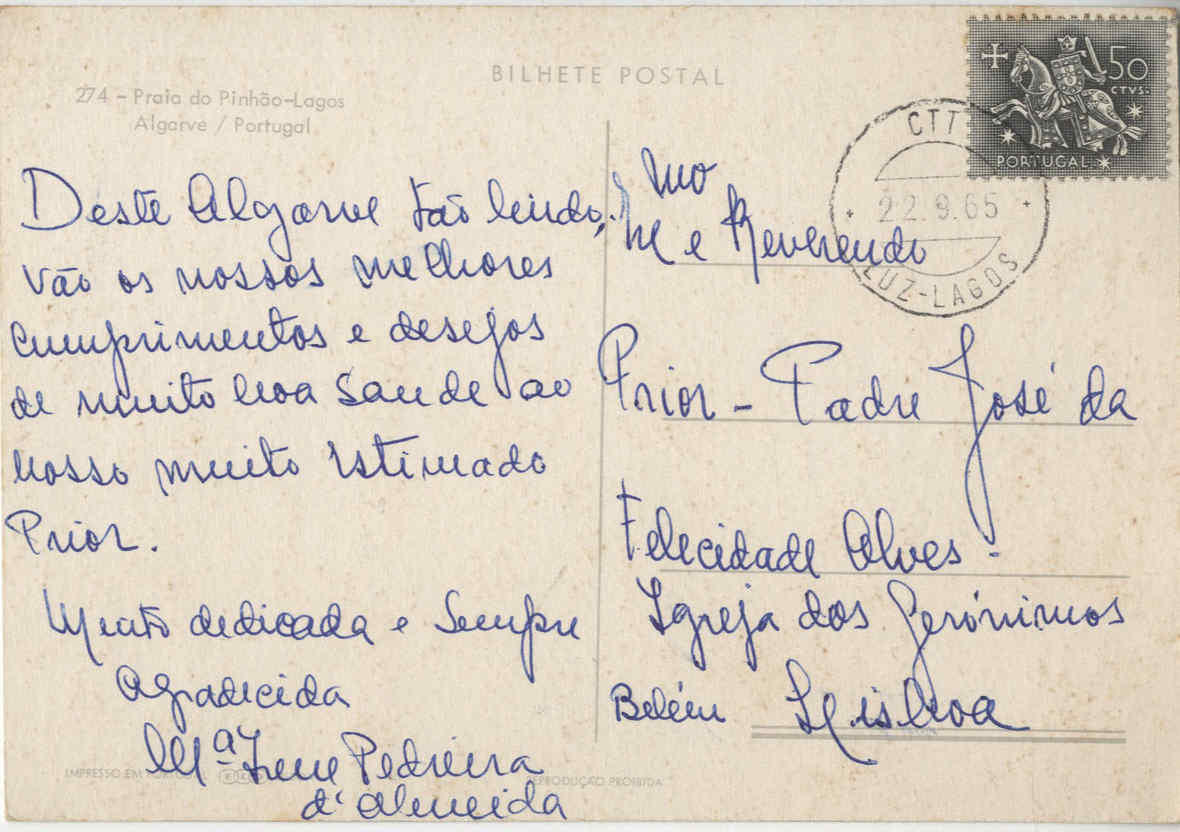 BILHETE POSTAL
274 – Praia do Pinhão-Lagos
Algarve / Portugal
50
CTVS.
PORTUGAL
CTT
22.9.65
LUZ-LAGOS
Deste Algarve tão lindo,
vão os nossos melhores
cumprimentos e desejos
de muito boa saude ao
nosso muito estimado
Prior.
Muito dedicada e sempre
agradecida
Mª Irene Pedreira
d'almeida
mo
e Reverendo
Prior – Padre José da
Felecidade Alves.
Igreja dos Jerónimos
Belém Lisboa
IMPRESSO EM PORTUGAL
REPRODUÇÃO PROIBIDA